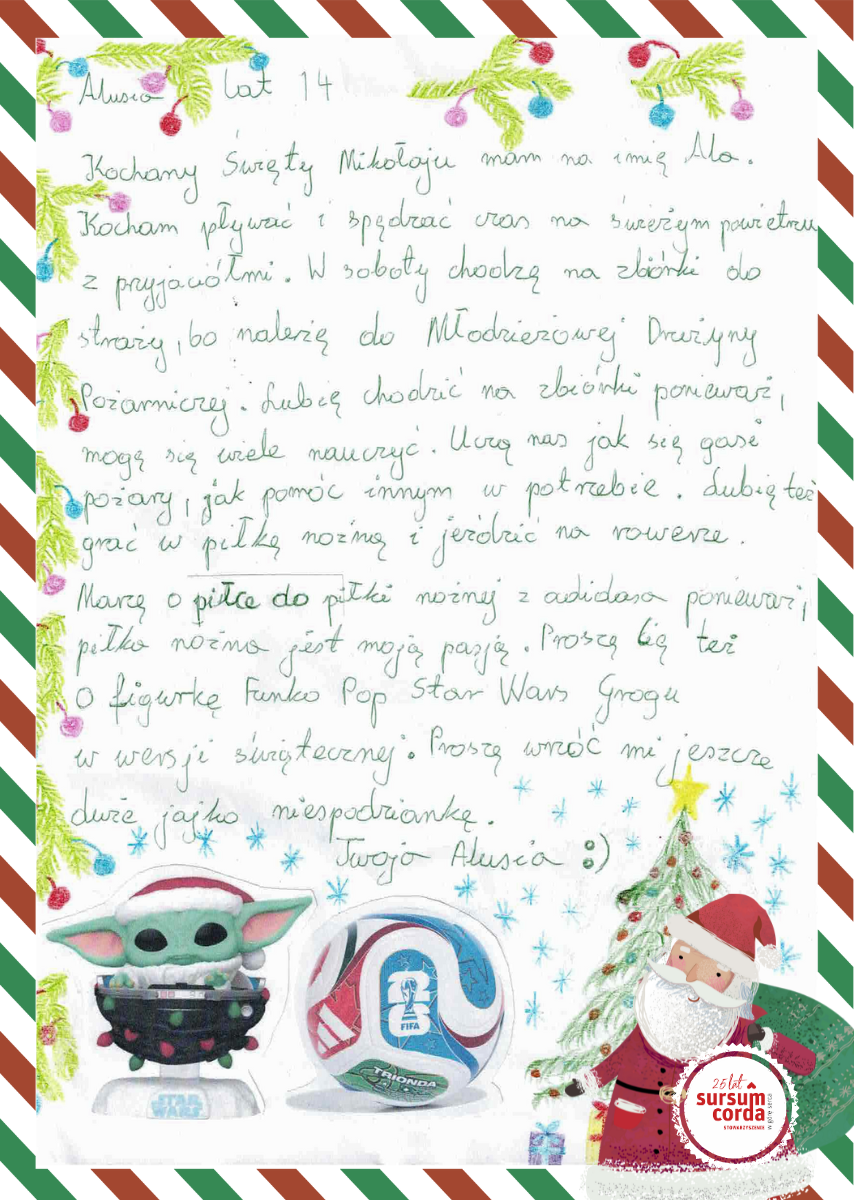 Alusia lat 14
Kochany Święty Mikołaju mam na imię Ala.
Kocham pływać i spędzać czas na świeżym powietrzu
z przyjaciółmi. W soboty chodzę na zbiórki do
straży, bo należę do Młodzieżowej Drużyny
Pożarniczej. Lubię chodzić na zbiórki ponieważ,
mogę się wiele nauczyć. Uczą nas jak się gasi
pożary, jak pomóc innym w potrzebie. Lubię też
grać w piłkę nożną i jeździć na rowerze.
Marzę o piłce do piłki nożnej z adidasa ponieważ,
piłka nożna jest moją pasją. Proszę Cię też
o figurkę Funko Pop Star Wars Grogu
w wersji świątecznej. Proszę wrzóć mi jeszcze
duże jajko niespodziankę.
Twoja Alusia :)
26
FIFA
TRIONDA
STAR
WARS
25 lat
sursum
corda
STOWARZYSZENIE